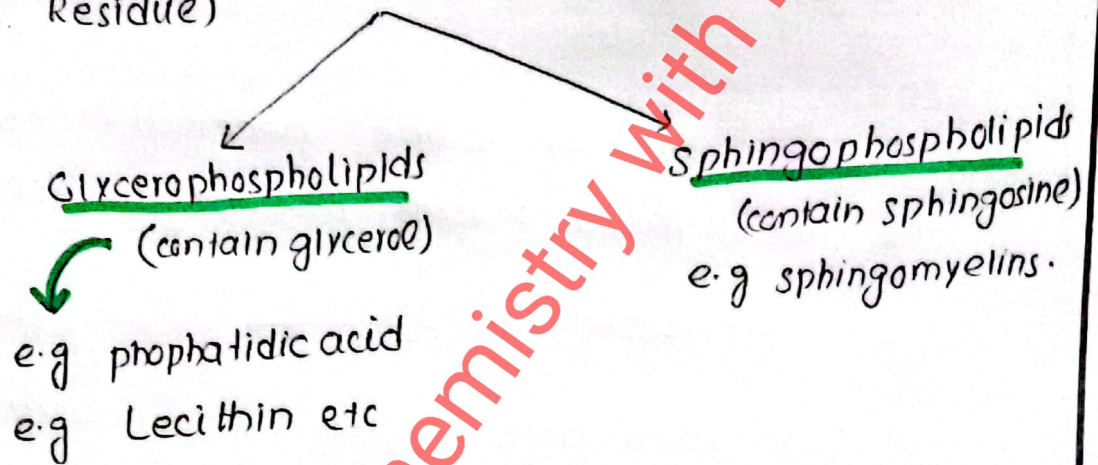 Residue)
Glycerophospholipids
(contain glycerol)
e.g phophatidic acid
e.g Lecithin etc
Sphingophospholipids
(contain sphingosine)
e.g sphingomyelins.
emistry with